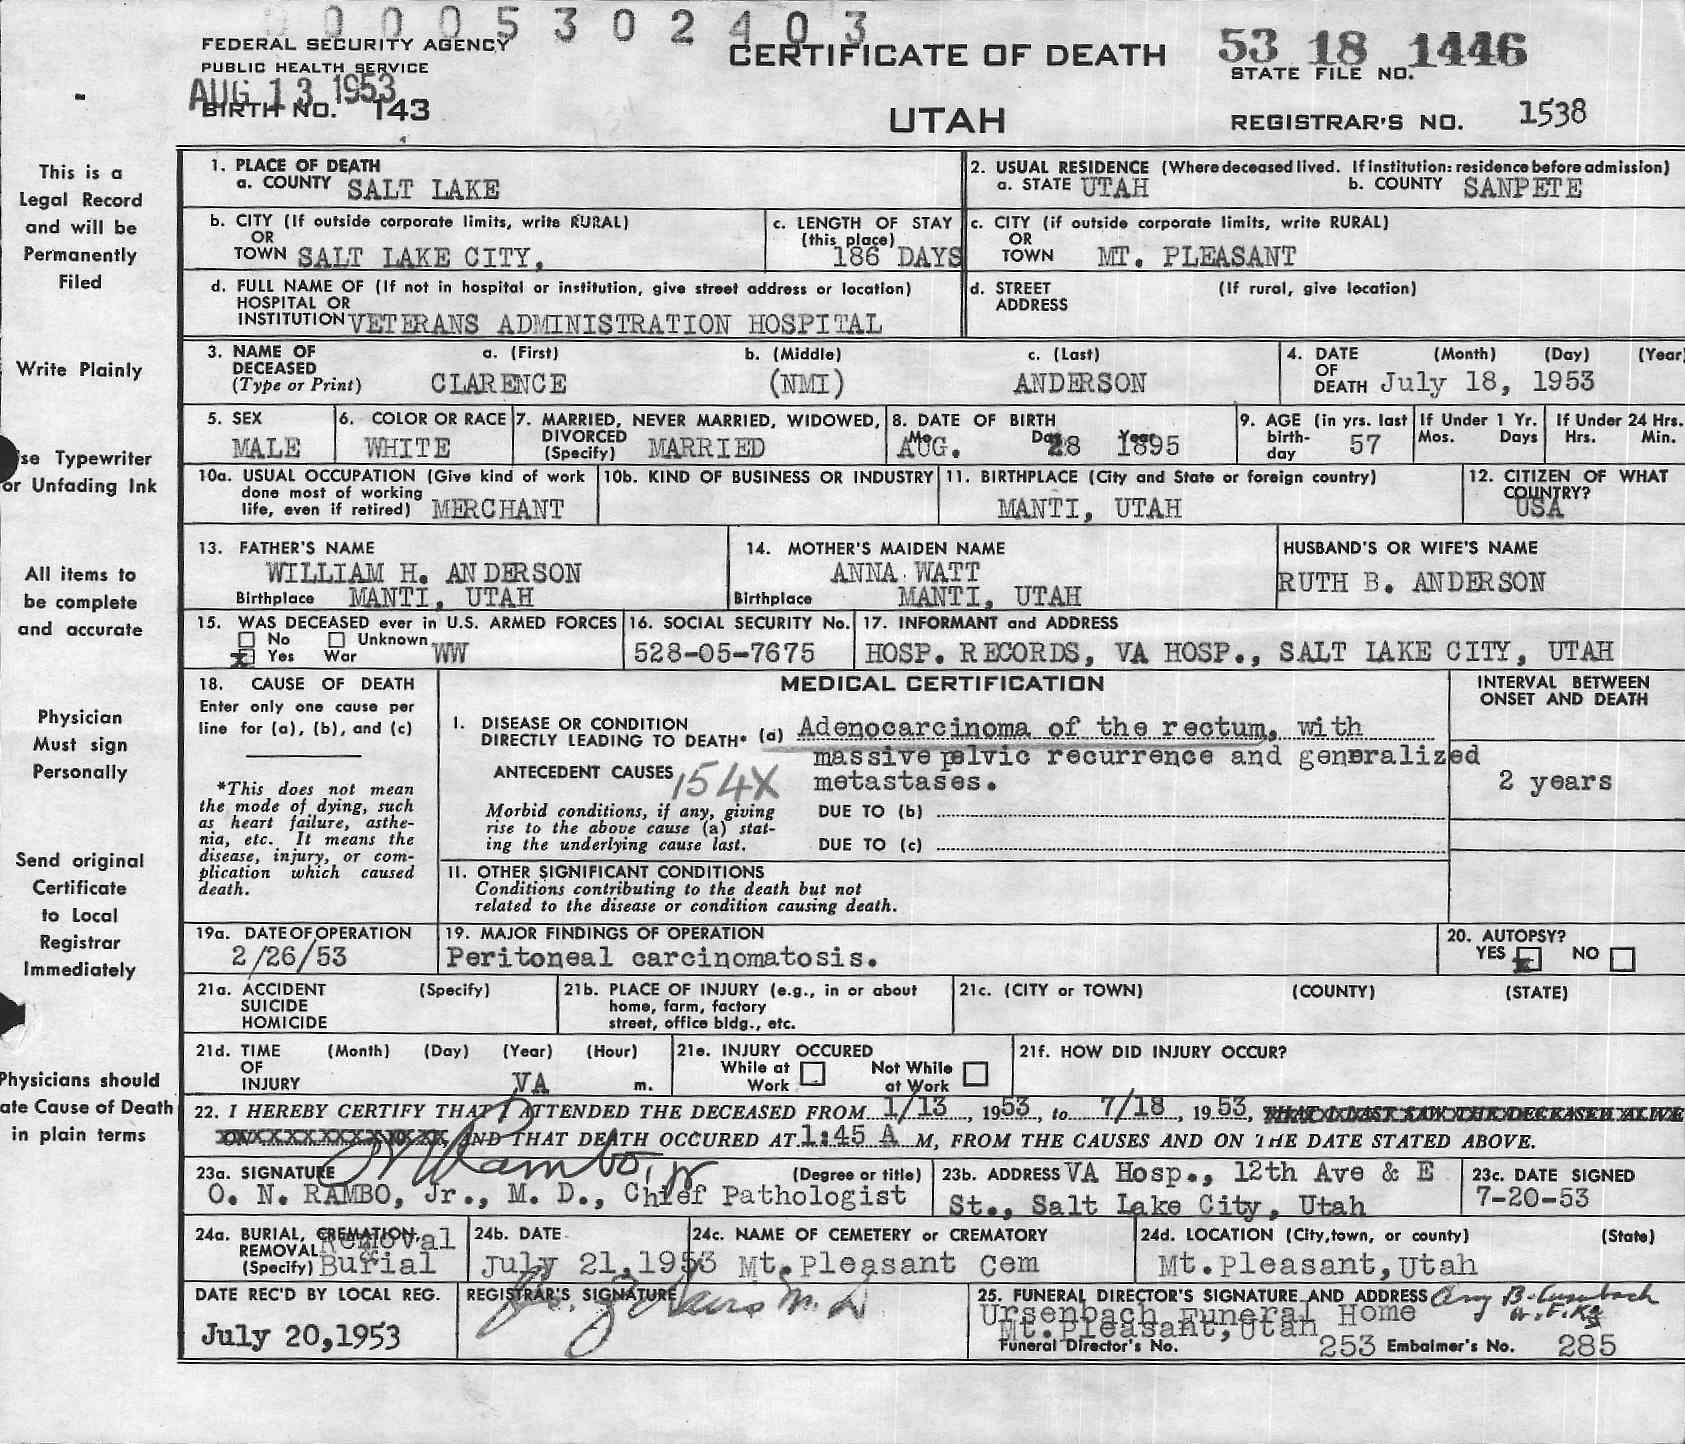 0 0 0 5 3 0 2 4 0 3
FEDERAL SECURITY AGENCY
PUBLIC HEALTH SERVICE
AUG 13 1953
BIRTH NO. 143
CERTIFICATE OF DEATH
UTAH
53 18 1446
STATE FILE NO.
REGISTRAR'S NO. 1538
This is a
Legal Record
and will be
Permanently
Filed
Write Plainly
se Typewriter
or Unfading Ink
All items to
be complete
and accurate
Physician
Must sign
Personally
Send original
Certificate
to Local
Registrar
Immediately
Physicians should
ate Cause of Death
in plain terms
1. PLACE OF DEATH
a. COUNTY SALT LAKE
2. USUAL RESIDENCE (Where deceased lived. If institution: residence before admission)
a. STATE UTAH b. COUNTY SANPETE
b. CITY (If outside corporate limits, write RURAL)
OR
TOWN SALT LAKE CITY,
c. LENGTH OF STAY
(this place)
186 DAYS
c. CITY (if outside corporate limits, write RURAL)
OR
TOWN MT. PLEASANT
d. FULL NAME OF (If not in hospital or institution, give street address or location)
HOSPITAL OR
INSTITUTION VETERANS ADMINISTRATION HOSPITAL
d. STREET (If rural, give location)
ADDRESS
3. NAME OF a. (First) b. (Middle) c. (Last)
DECEASED
(Type or Print) CLARENCE (NMI) ANDERSON
4. DATE (Month) (Day) (Year)
OF
DEATH July 18, 1953
5. SEX
MALE
6. COLOR OR RACE
WHITE
7. MARRIED, NEVER MARRIED, WIDOWED,
DIVORCED
(Specify) MARRIED
8. DATE OF BIRTH
Mo. Day Year
AUG. 28 1895
9. AGE (in yrs. last
birth-
day 57
If Under 1 Yr.
Mos. Days
If Under 24 Hrs.
Hrs. Min.
10a. USUAL OCCUPATION (Give kind of work
done most of working
life, even if retired) MERCHANT
10b. KIND OF BUSINESS OR INDUSTRY
11. BIRTHPLACE (City and State or foreign country)
MANTI, UTAH
12. CITIZEN OF WHAT
COUNTRY?
USA
13. FATHER'S NAME
WILLIAM H. ANDERSON
Birthplace MANTI, UTAH
14. MOTHER'S MAIDEN NAME
ANNA WATT
Birthplace MANTI, UTAH
HUSBAND'S OR WIFE'S NAME
RUTH B. ANDERSON
15. WAS DECEASED ever in U.S. ARMED FORCES
No Unknown
x Yes War WW
16. SOCIAL SECURITY No.
528-05-7675
17. INFORMANT and ADDRESS
HOSP. RECORDS, VA HOSP., SALT LAKE CITY, UTAH
18. CAUSE OF DEATH
Enter only one cause per
line for (a), (b), and (c)
*This does not mean
the mode of dying, such
as heart failure, asthe-
nia, etc. It means the
disease, injury, or com-
plication which caused
death.
MEDICAL CERTIFICATION
INTERVAL BETWEEN
ONSET AND DEATH
I. DISEASE OR CONDITION
DIRECTLY LEADING TO DEATH* (a) Adenocarcinoma of the rectum, with
massive pelvic recurrence and generalized
metastases.
2 years
ANTECEDENT CAUSES 154X
Morbid conditions, if any, giving
rise to the above cause (a) stat-
ing the underlying cause last.
DUE TO (b)
DUE TO (c)
II. OTHER SIGNIFICANT CONDITIONS
Conditions contributing to the death but not
related to the disease or condition causing death.
19a. DATE OF OPERATION
2/26/53
19. MAJOR FINDINGS OF OPERATION
Peritoneal carcinomatosis.
20. AUTOPSY?
YES x NO
21a. ACCIDENT (Specify)
SUICIDE
HOMICIDE
21b. PLACE OF INJURY (e.g., in or about
home, farm, factory
street, office bldg., etc.
21c. (CITY or TOWN) (COUNTY) (STATE)
21d. TIME (Month) (Day) (Year) (Hour)
OF
INJURY VA m.
21e. INJURY OCCURED
While at Not While
Work at Work
21f. HOW DID INJURY OCCUR?
22. I HEREBY CERTIFY THAT I ATTENDED THE DECEASED FROM 1/13, 1953, to 7/18, 1953, THAT I LAST SAW THE DECEASED ALIVE
ON, AND THAT DEATH OCCURED AT 1:45 A M, FROM THE CAUSES AND ON THE DATE STATED ABOVE.
23a. SIGNATURE O N Rambo, Jr (Degree or title)
O. N. RAMBO, Jr., M. D., Chief Pathologist
23b. ADDRESS VA Hosp., 12th Ave & E
St., Salt Lake City, Utah
23c. DATE SIGNED
7-20-53
24a. BURIAL, CREMATION,
REMOVAL Removal
&
(Specify) Burial
24b. DATE
July 21,1953
24c. NAME OF CEMETERY OR CREMATORY
Mt.Pleasant Cem
24d. LOCATION (City,town, or county) (State)
Mt.Pleasant,Utah
DATE REC'D BY LOCAL REG.
July 20,1953
REGISTRAR'S SIGNATURE
M. D
25. FUNERAL DIRECTOR'S SIGNATURE AND ADDRESS
Ursenbach Funeral Home
Mt.Pleasant,Utah
Funeral Director's No. 253 Embalmer's No. 285